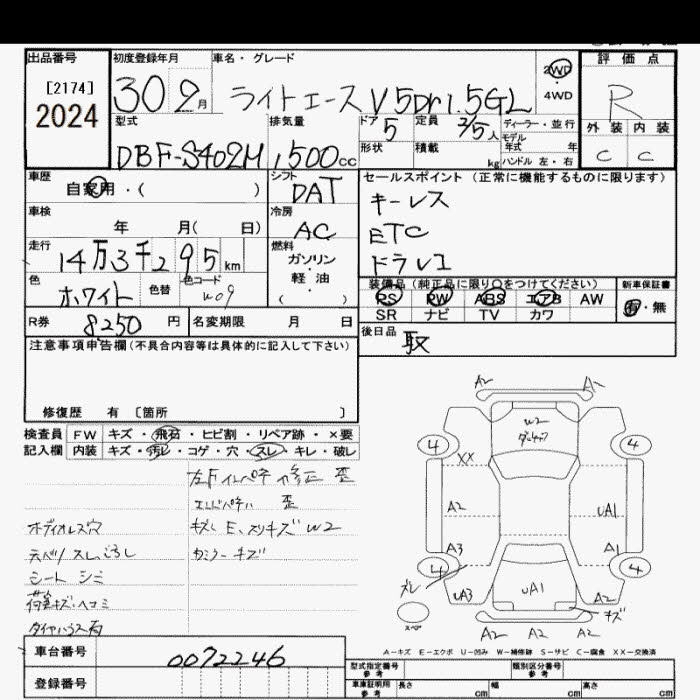 出品番号
[2174]
2024
初度登録年月
30 9月
車名・グレード
ライトエース V 5Dr1.5GL
2WD
4WD
評価点
R
外装 内装
C C
型式
DBF-S402M
排気量
1500cc
ドア
5
定員
2/5人
ディーラー・並行
モデル
年式 年
形状
積載
kg
ハンドル 左・右
車歴
自家用・( )
シフト
DAT
セールスポイント (正常に機能するものに限ります)
キーレス
ETC
ドラレコ
車検
年 月( 日)
冷房
AC
走行
14万3千295km
燃料
ガソリン
・
軽・油
( )
色
ホワイト
色替
色コード
W09
装備品(純正品に限り○をつけてください)
PS PW ABS エアB AW
SR ナビ TV カワ
新車保証書
有・無
R券 8250円
名変期限 月 日
後日品
取
注意事項申告欄(不具合内容等は具体的に記入して下さい)
修復歴 有 〔箇所 〕
検査員 FW キズ・飛石・ヒビ割・リペア跡・×要
記入欄 内装 キズ・汚レ・コゲ・穴・スレ・キレ・破レ
左F インパネ 修正 歪
エンドパネル 歪
キズ E、スリキズ W2
カミラー キズ
オーディオレス穴
天ベリ スレ
シート シミ
荷室キズ・ヘコミ
A2 A1
W2
4 4
XX
A2 UA1
A3 A1
4 4
ズレ
UA3 UA1 A2
キズ
スペア
A2 A2 A2
A-キズ E-エクボ U-凹み W-補修跡 S-サビ C-腐食 XX-交換済
車台番号 0072246
登録番号
型式指定番号
参考
類別区分番号
参考
車庫証明用
参考
長さ cm 幅 cm 高さ cm